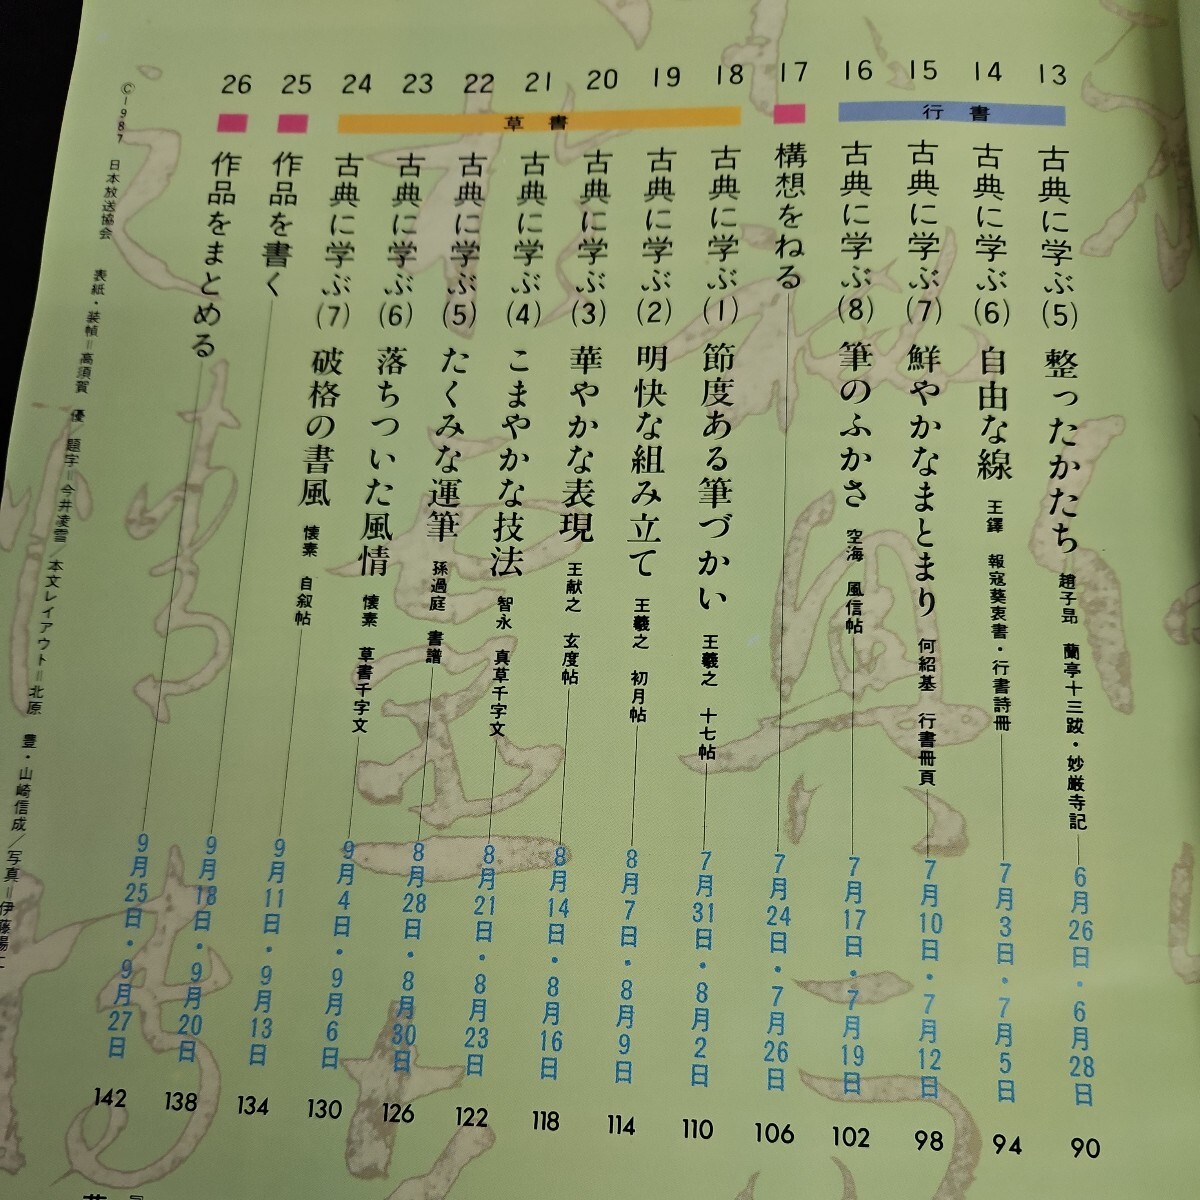 行書
13 古典に学ぶ(5) 整ったかたち 趙子昻 蘭亭十三跋・妙厳寺記 6月26日・6月28日 90
14 古典に学ぶ(6) 自由な線 王鐸 報寇葵衷書・行書詩冊 7月3日・7月5日 94
15 古典に学ぶ(7) 鮮やかなまとまり 何紹基 行書冊頁 7月10日・7月12日 98
16 古典に学ぶ(8) 筆のふかさ 空海 風信帖 7月17日・7月19日 102
17 構想をねる 7月24日・7月26日 106
草書
18 古典に学ぶ(1) 節度ある筆づかい 王羲之 十七帖 7月31日・8月2日 110
19 古典に学ぶ(2) 明快な組み立て 王羲之 初月帖 8月7日・8月9日 114
20 古典に学ぶ(3) 華やかな表現 王献之 玄度帖 8月14日・8月16日 118
21 古典に学ぶ(4) こまやかな技法 智永 真草千字文 8月21日・8月23日 122
22 古典に学ぶ(5) たくみな運筆 孫過庭 書譜 8月28日・8月30日 126
23 古典に学ぶ(6) 落ちついた風情 懐素 草書千字文 9月4日・9月6日 130
24 古典に学ぶ(7) 破格の書風 懐素 自叙帖 9月11日・9月13日 134
25 作品を書く 9月18日・9月20日 138
26 作品をまとめる 9月25日・9月27日 142
©1987 日本放送協会 表紙・装幀=高須賀 優/題字=今井凌雪/本文レイアウト=北原 豊・山崎信成/写真=伊藤